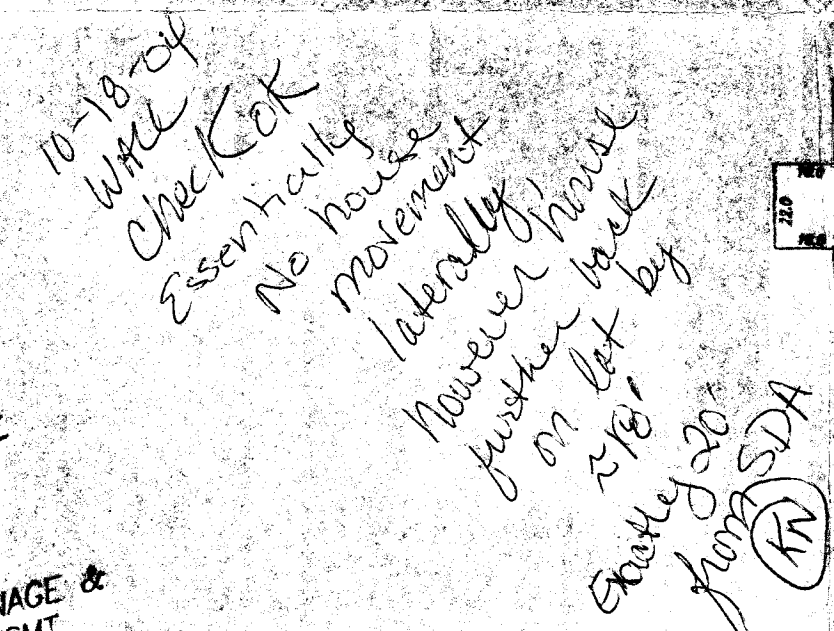 10-18-04
Wall
Check OK
Essentially
No house
movement
laterally,
however house
further back
on lot by
Exactly 20'
from SDA
KN
22.0
NAGE &